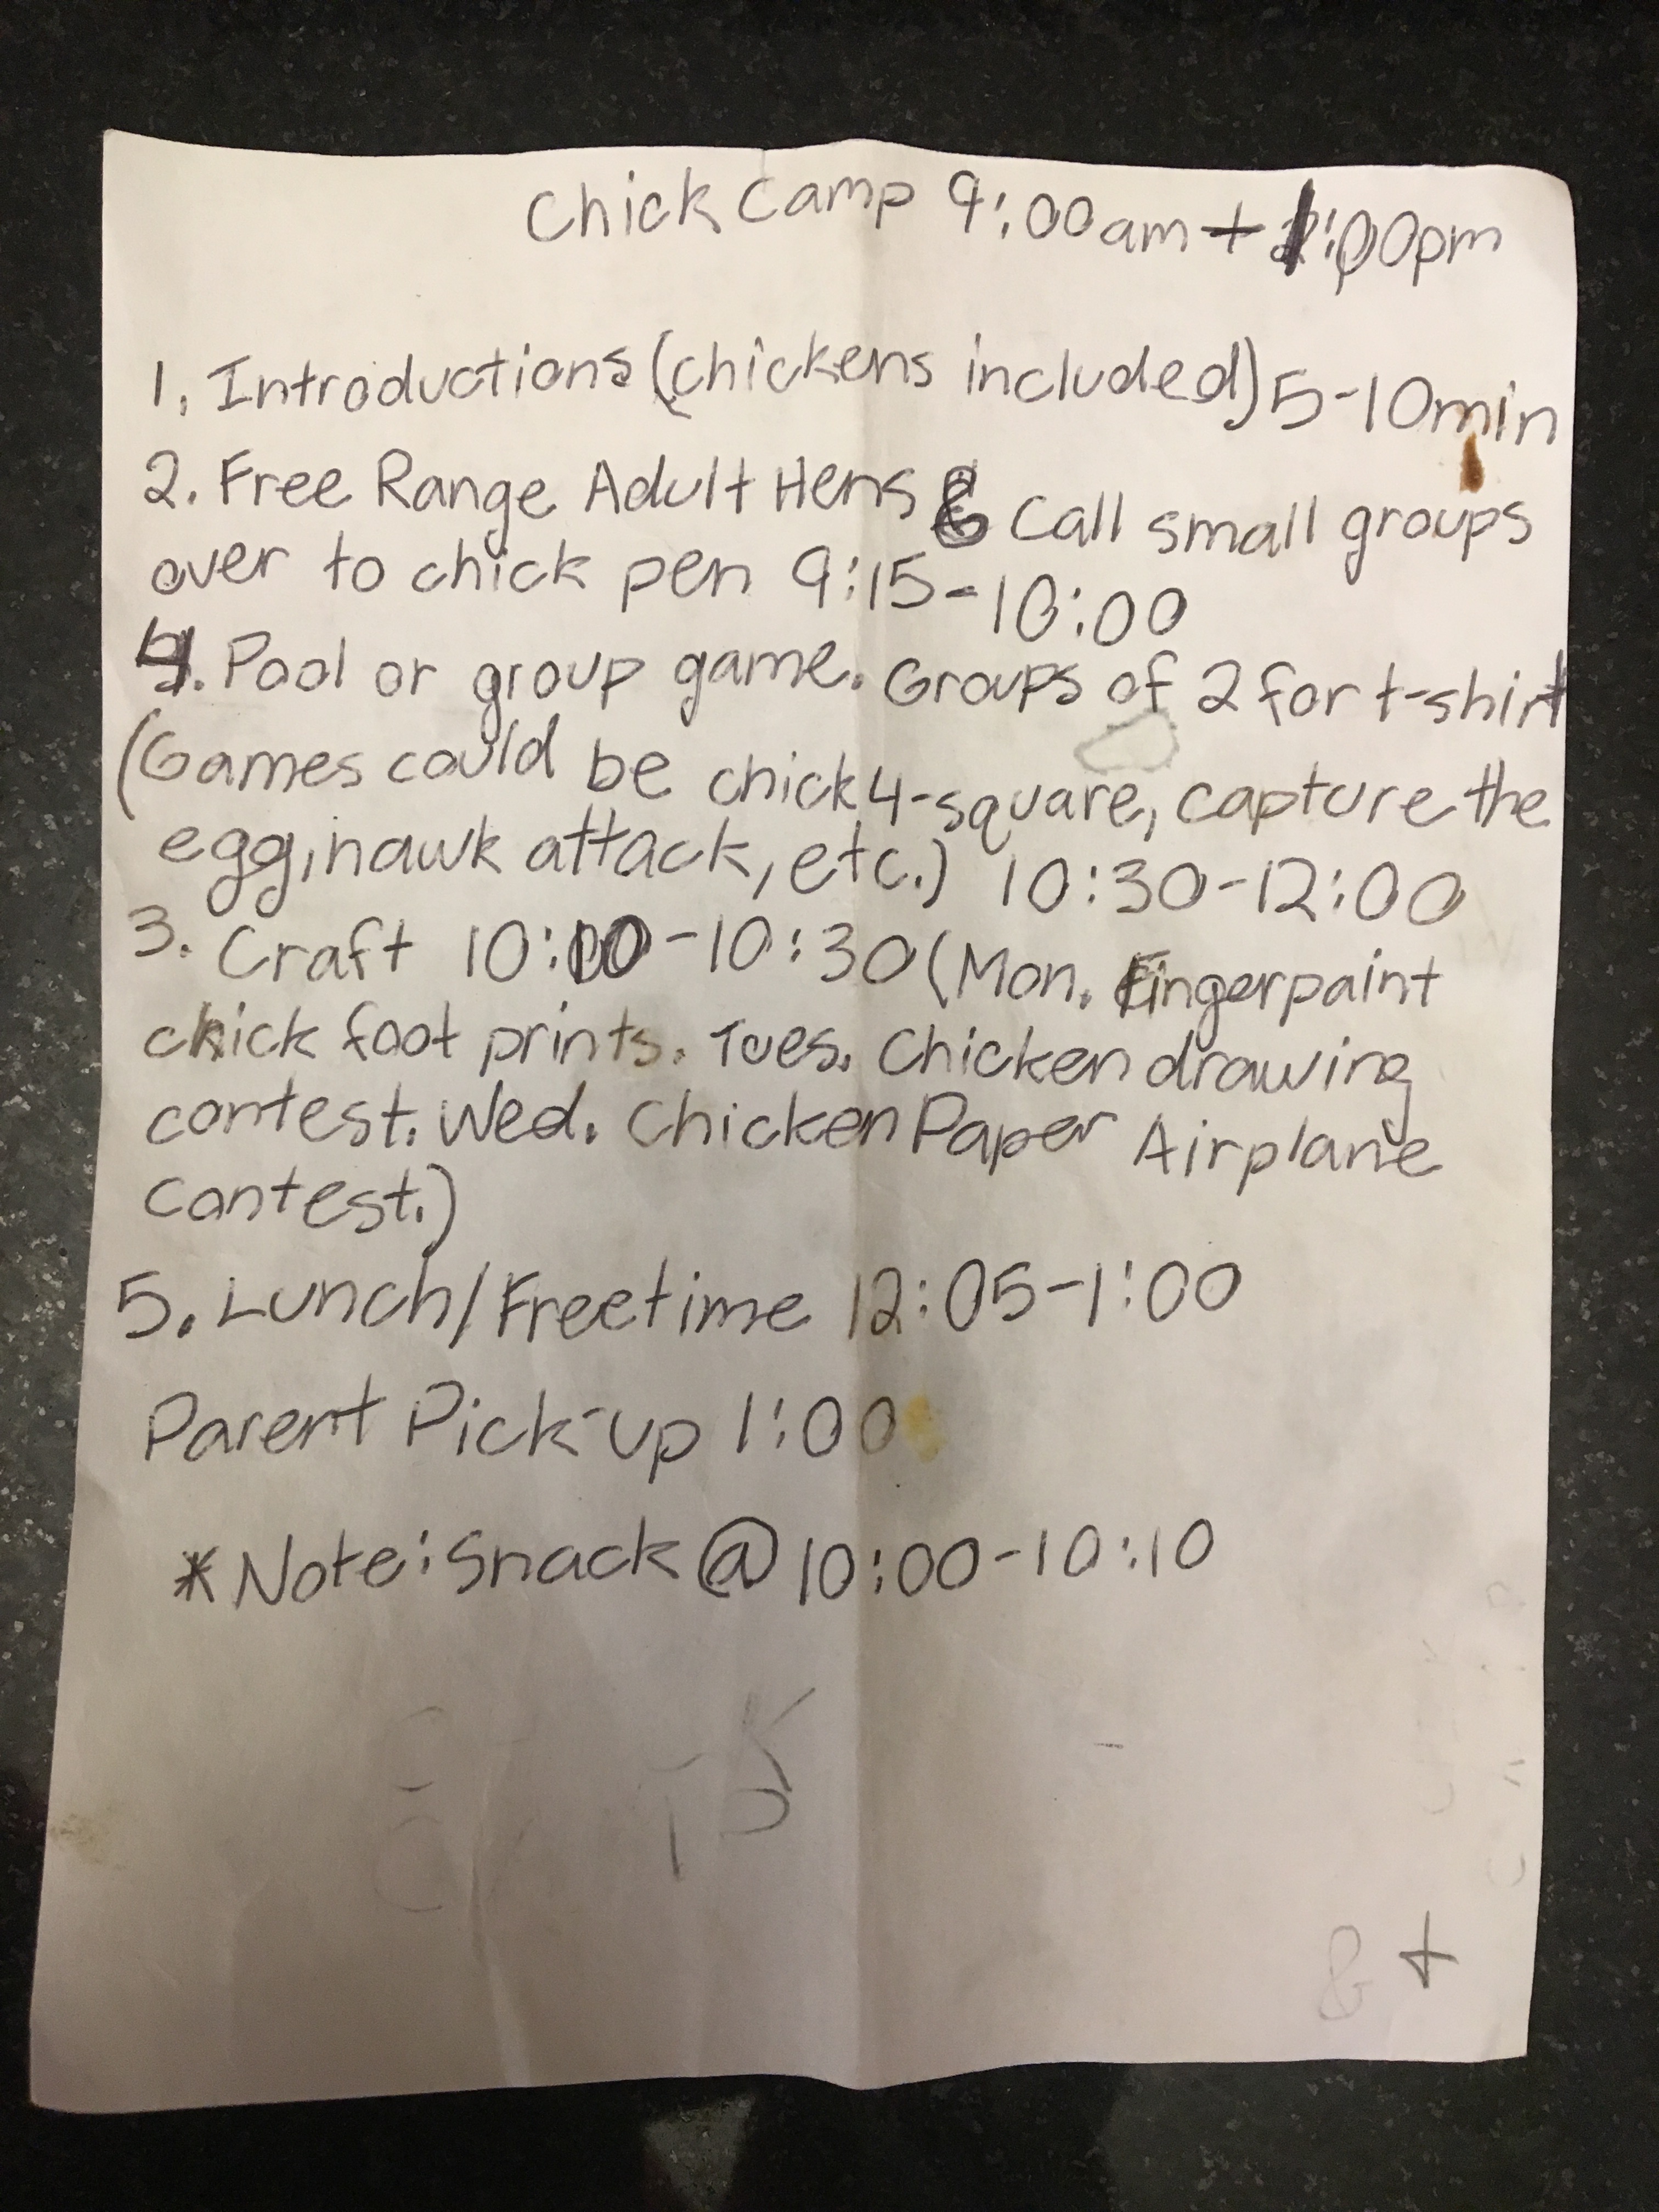 Chick Camp 9:00am + 1:00pm
1. Introductions (chickens included) 5-10min
2. Free Range Adult Hens & Call small groups
over to chick pen 9:15-10:00
4. Pool or group game. Groups of 2 for t-shirt
(Games could be chick 4-square, capture the
egg, hawk attack, etc.) 10:30-12:00
3. Craft 10:10-10:30 (Mon. Fingerpaint
chick foot prints. Tues. Chicken drawing
contest. Wed. Chicken Paper Airplane
Contest.)
5. Lunch/Freetime 12:05-1:00
Parent Pick-up 1:00
*Note: Snack @ 10:00-10:10
& +